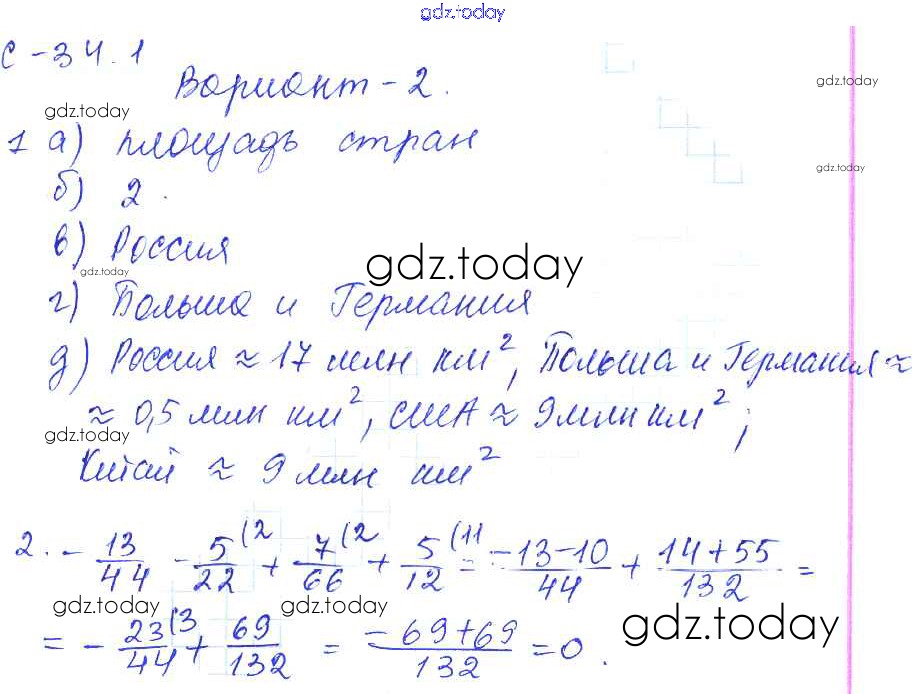 gdz.today
С-34.1
Вариант-2.
gdz.today
gdz.today
1 а) площадь стран
gdz.today
б) 2.
в) Россия
gdz.today
gdz.today
г) Польша и Германия
д) Россия ≈ 17 млн км², Польша и Германия ≈
≈ 0,5 млн км², США ≈ 9 млн км²;
gdz.today
Китай ≈ 9 млн км²
2. - 13/44 - 5/22 (2 + 7/66 (2 + 5/12 (11 = -13-10/44 + 14+55/132 =
gdz.today gdz.today gdz.today
= - 23/44 (3 + 69/132 = -69+69/132 = 0.